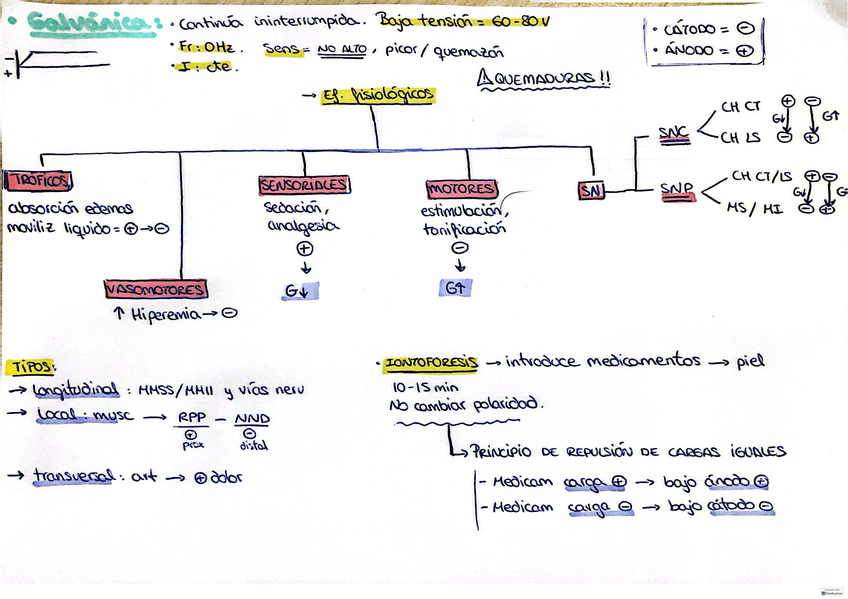 • Galvánica: • Continua ininterrumpida. Baja tensión = 60-80 V
• Fr: 0Hz. Sens = NO ALTO, picor/quemazón
• I: cte.
⚠ QUEMADURAS!!
• CÁTODO = ⊖
• ÁNODO = ⊕
- +
→ Ef. fisiológicos
TRÓFICOS
absorción edemas
moviliz liquido = ⊕ → ⊖
VASOMOTORES
↑ Hiperemia → ⊖
SENSORIALES
sedación,
analgesia
⊕
↓
G↓
MOTORES
estimulación,
tonificación
⊖
↓
G↑
SN
SNC
CH CT ⊕ ⊖
G↓ G↑
CH LS ⊖ ⊕
SNP
CH CT/LS ⊕ ⊖
G↓ G
MS/MI ⊖ ⊕
TIPOS:
→ Longitudinal: MMSS/MMII y vías nerv
→ Local: musc → RPP - NND
⊕ ⊖
prox distal
→ transversal: art → ⊕ dolor
• IONTOFORESIS → introduce medicamentos → piel
10-15 min
No cambiar polaridad.
↳ PRINCIPIO DE REPULSIÓN DE CARGAS IGUALES
- Medicam carga ⊕ → bajo ánodo ⊕
- Medicam carga ⊖ → bajo cátodo ⊖
CamScanner